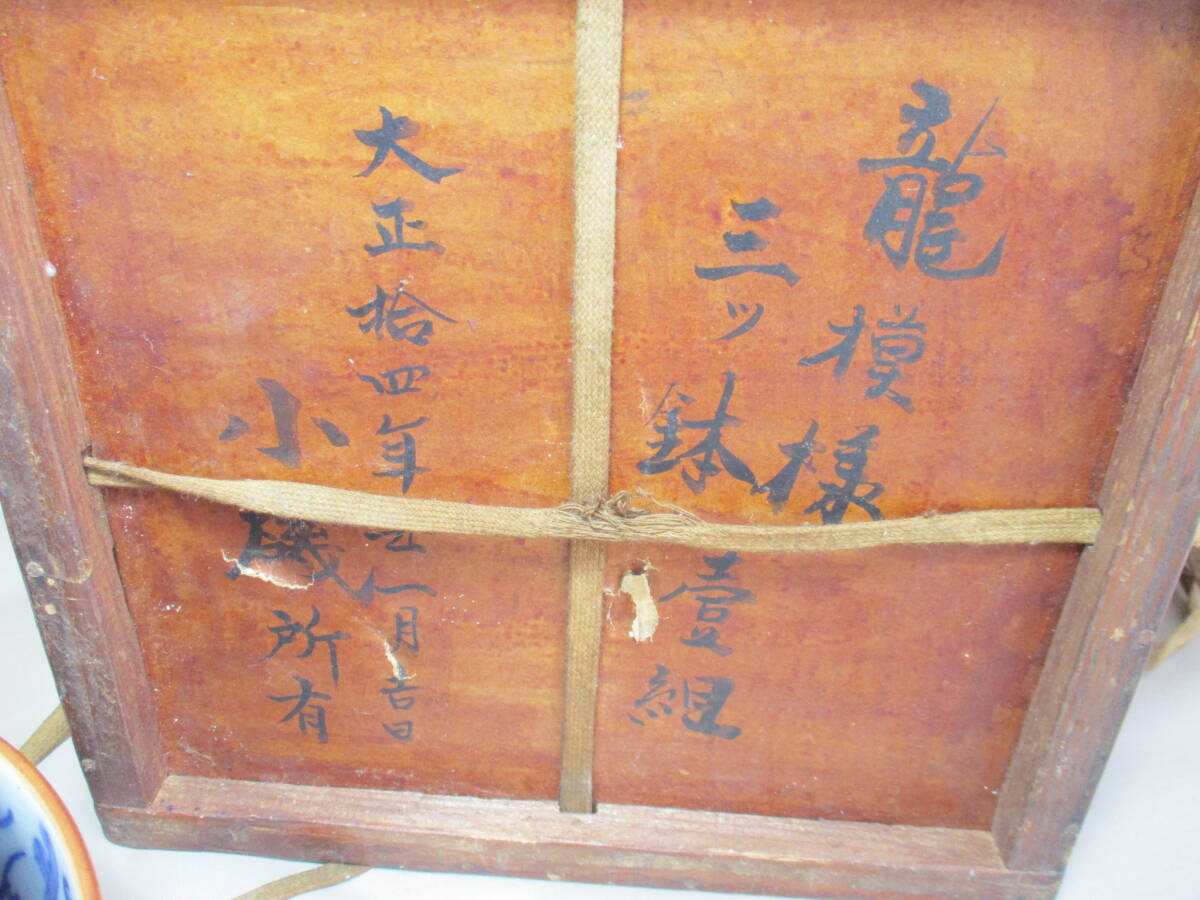 龍模様
三ッ鉢壹組
大正拾四年 一月吉日
小磯所有